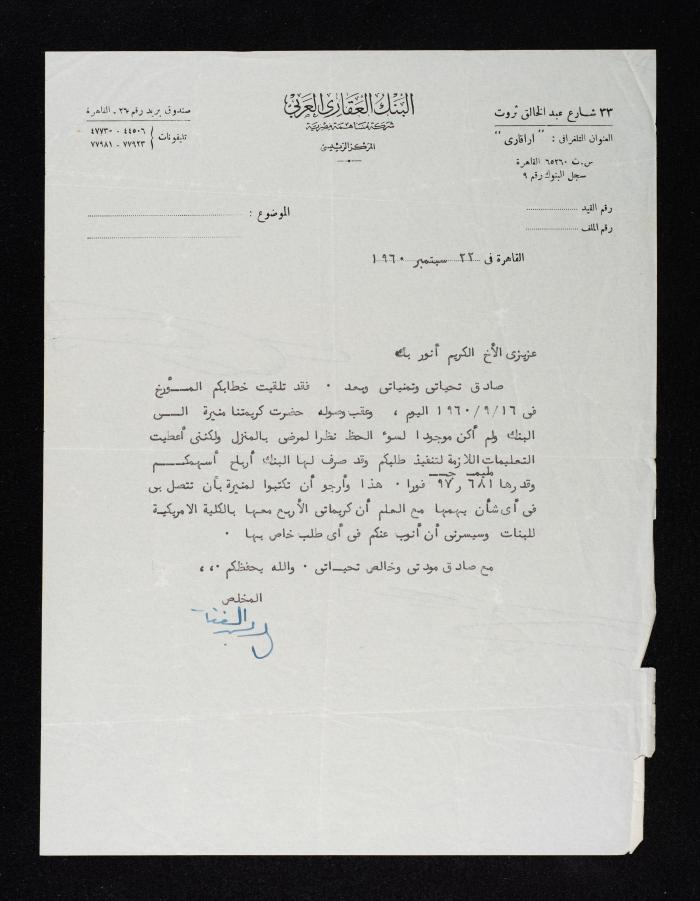 ٣٣ شارع عبد الخالق ثروت
العنوان التلغرافى : " اراقارى "
س . ت ٦٥٢٦٠ القاهرة
سجل البنوك رقم ٩
البنك العقارى العربى
شركة مساهمة مصرية
المركز الرئيسى
صندوق بريد رقم ٢٦٠ - القاهرة
تليفونات ( ٤٤٥٠٦ - ٤٧٧٣٠
٧٧٩٢٣ - ٧٧٩٨١
رقم القيد
رقم الملف
الموضوع :
القاهرة فى ٢٢ سبتمبر ١٩٦٠
عزيزى الأخ الكريم أنور بك
صادق تحياتى وتمنياتى وبعد ٠ فقد تلقيت خطابكم المــؤرخ
فى ١٩٦٠/٩/١٦ اليوم ، وعقب وصوله حضرت كريمتنا منيرة الــى
البنك ولم أكن موجودا لسوء الحظ نظرا لمرضى بالمنزل ولكننى أعطيت
التعليمات اللازمة لتنفيذ طلبكم وقد صرف لها البنك أرباح أسهمكــم
مليمـ جـ
وقدرها ٦٨١ ر٩٧ فورا ٠ هذا وأرجو أن تكتبوا لمنيرة بأن تتصل بى
فى أى شأن يهمها مع العلم أن كريماتى الأربع معها بالكلية الامريكية
للبنات وسيسرنى أن أنوب عنكم فى أى طلب خاص بها ٠
مع صادق مودتى وخالص تحيــاتى ٠ والله يحفظكم ٠،،
المخلص